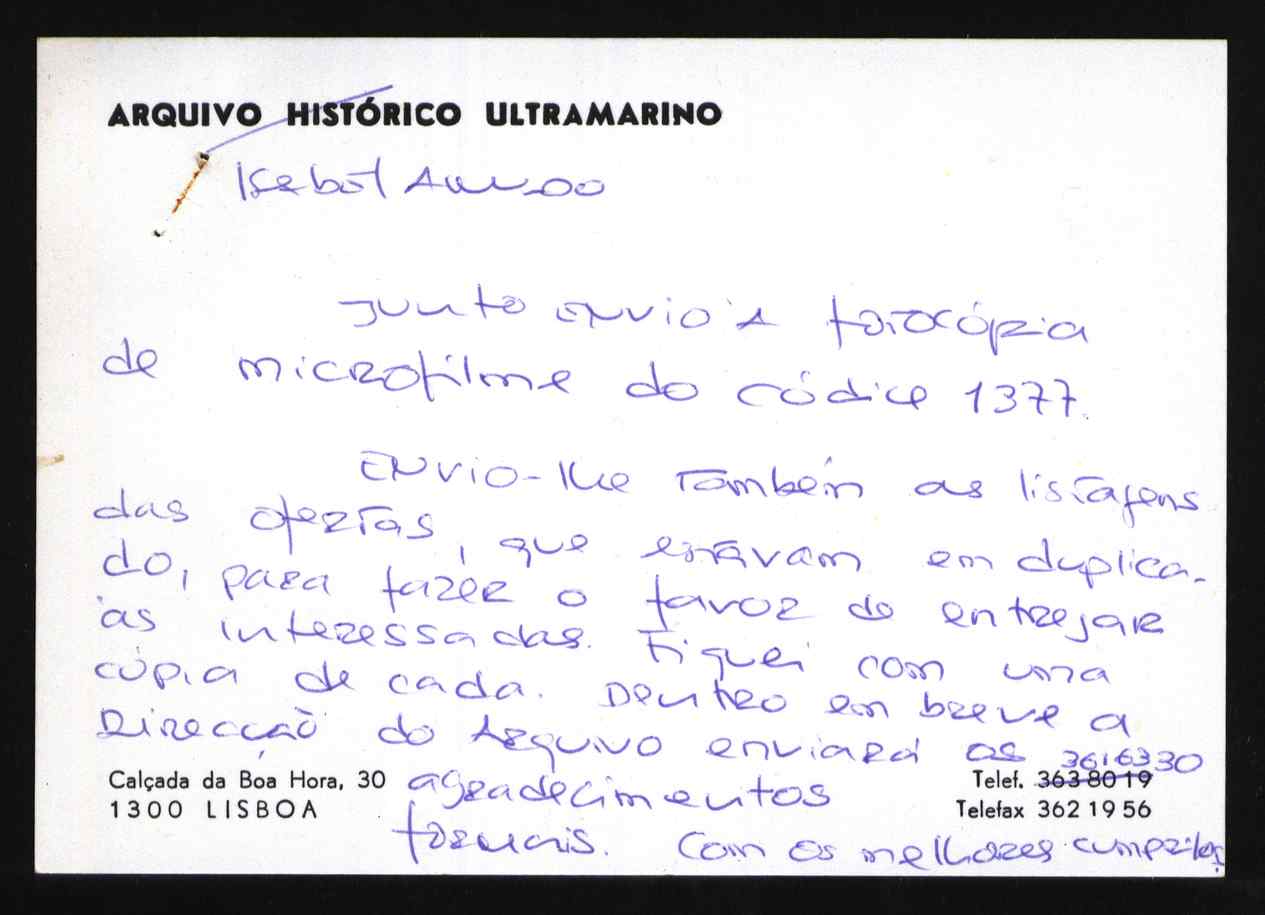 ARQUIVO HISTÓRICO ULTRAMARINO
Isabel
Junto envio a fotocópia
de microfilme do códice 1377.
Envio-lhe também as listagens
das ofertas, que estavam em duplica-
do, para fazer o favor de entregar
às interessadas. Fiquei com uma
cópia de cada. Dentro em breve a
Direcção do Arquivo enviará os
agradecimentos
formais. Com os melhores
Calçada da Boa Hora, 30
1300 LISBOA
3616330
Telef. 363 80 19
Telefax 362 19 56